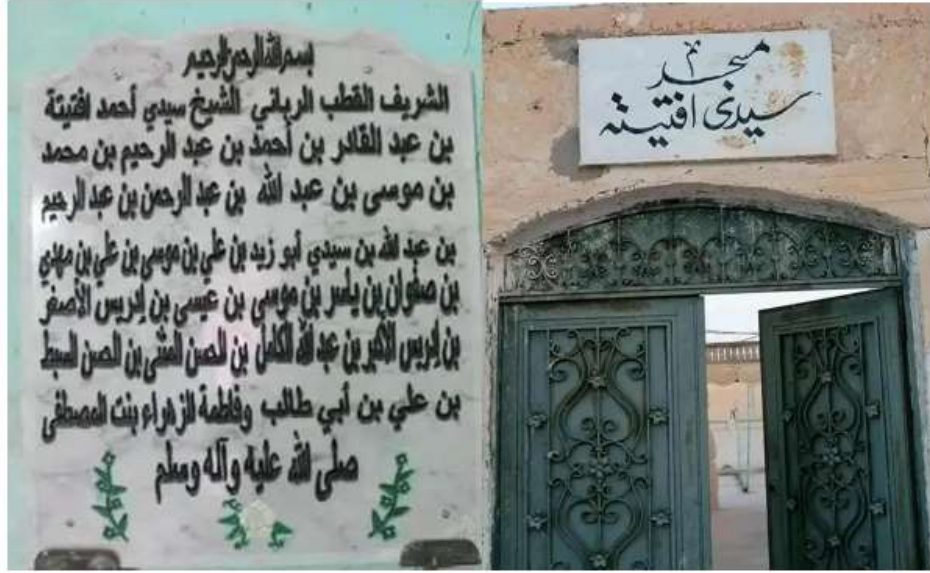 بسم الله الرحمن الرحيم
الشريف القطب الرباني الشيخ سيدي أحمد افتيتة
بن عبد القادر بن أحمد بن عبد الرحيم بن محمد
بن موسى بن عبد الله بن عبد الرحمن بن عبد الرحيم
بن عبد الله بن سيدي أبو زيد بن علي بن موسى بن علي بن مهدي
بن صفوان بن ياسر بن موسى بن عيسى بن إدريس الأصغر
بن إدريس الأكبر بن عبد الله الكامل بن الحسن المثنى بن الحسن السبط
بن علي بن أبي طالب وفاطمة الزهراء بنت المصطفى
صلى الله عليه وآله وسلم
مسجد
سيدى افتيته